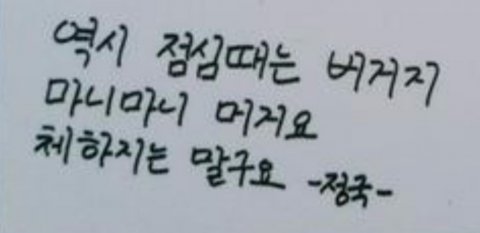 역시 점심때는 버거지
마니마니 머거요
체하지는 말구요 -정국-